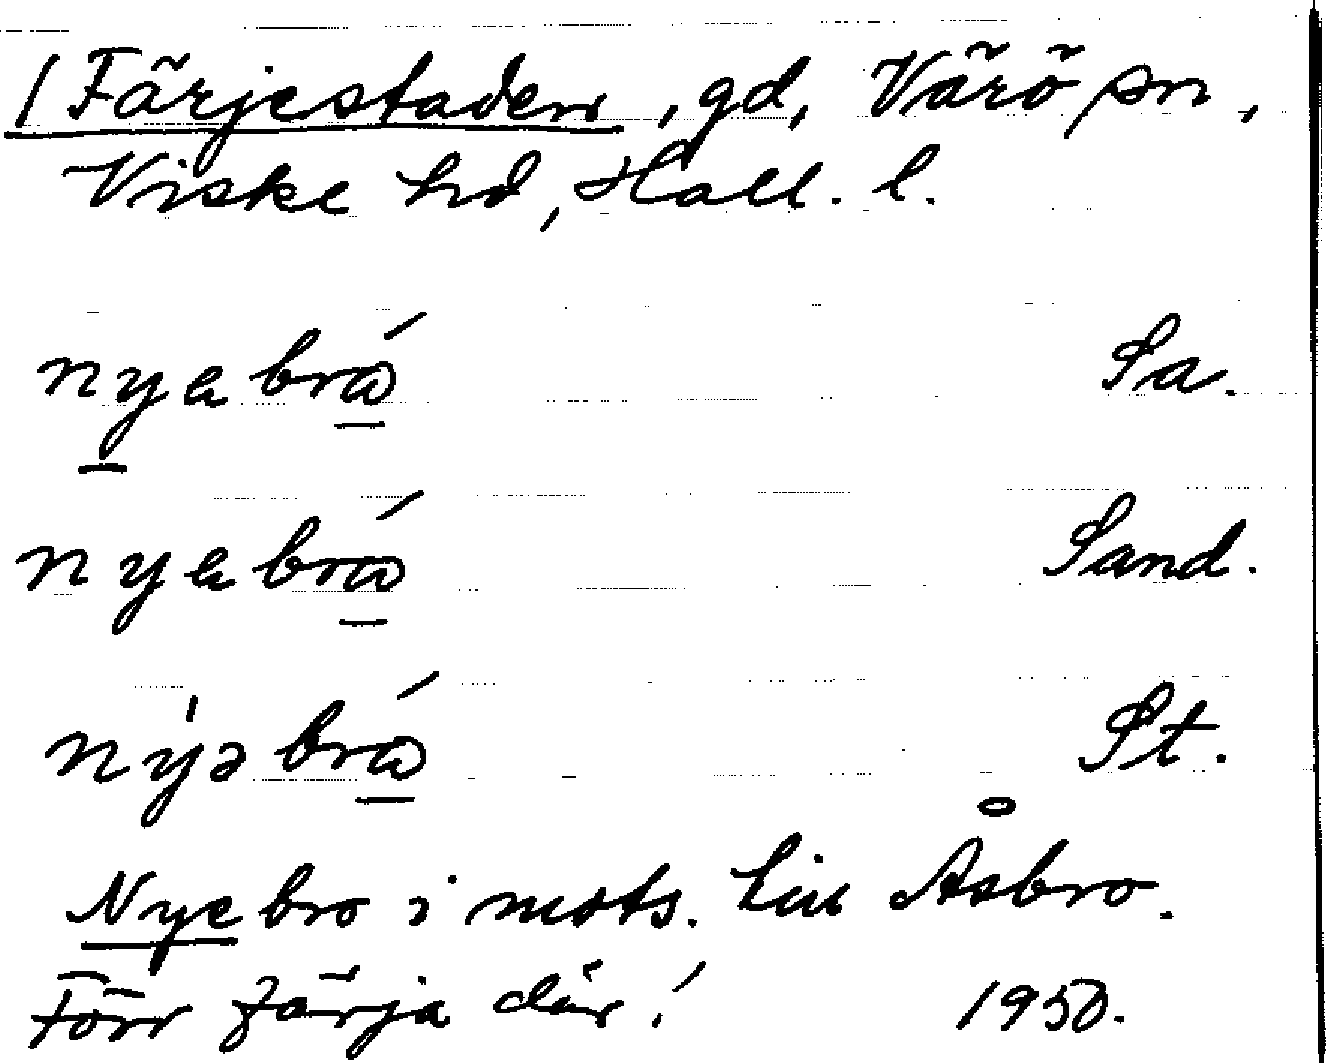 / Färjestaden, gd, Värö sn,
Viske hd, Hall. l.
nyabrǻ Sa.
nyabrǻ Sand.
ny̍əbrǻ St.
Nyebro i mots. till Åsbro.
Förr färja där! 1950.